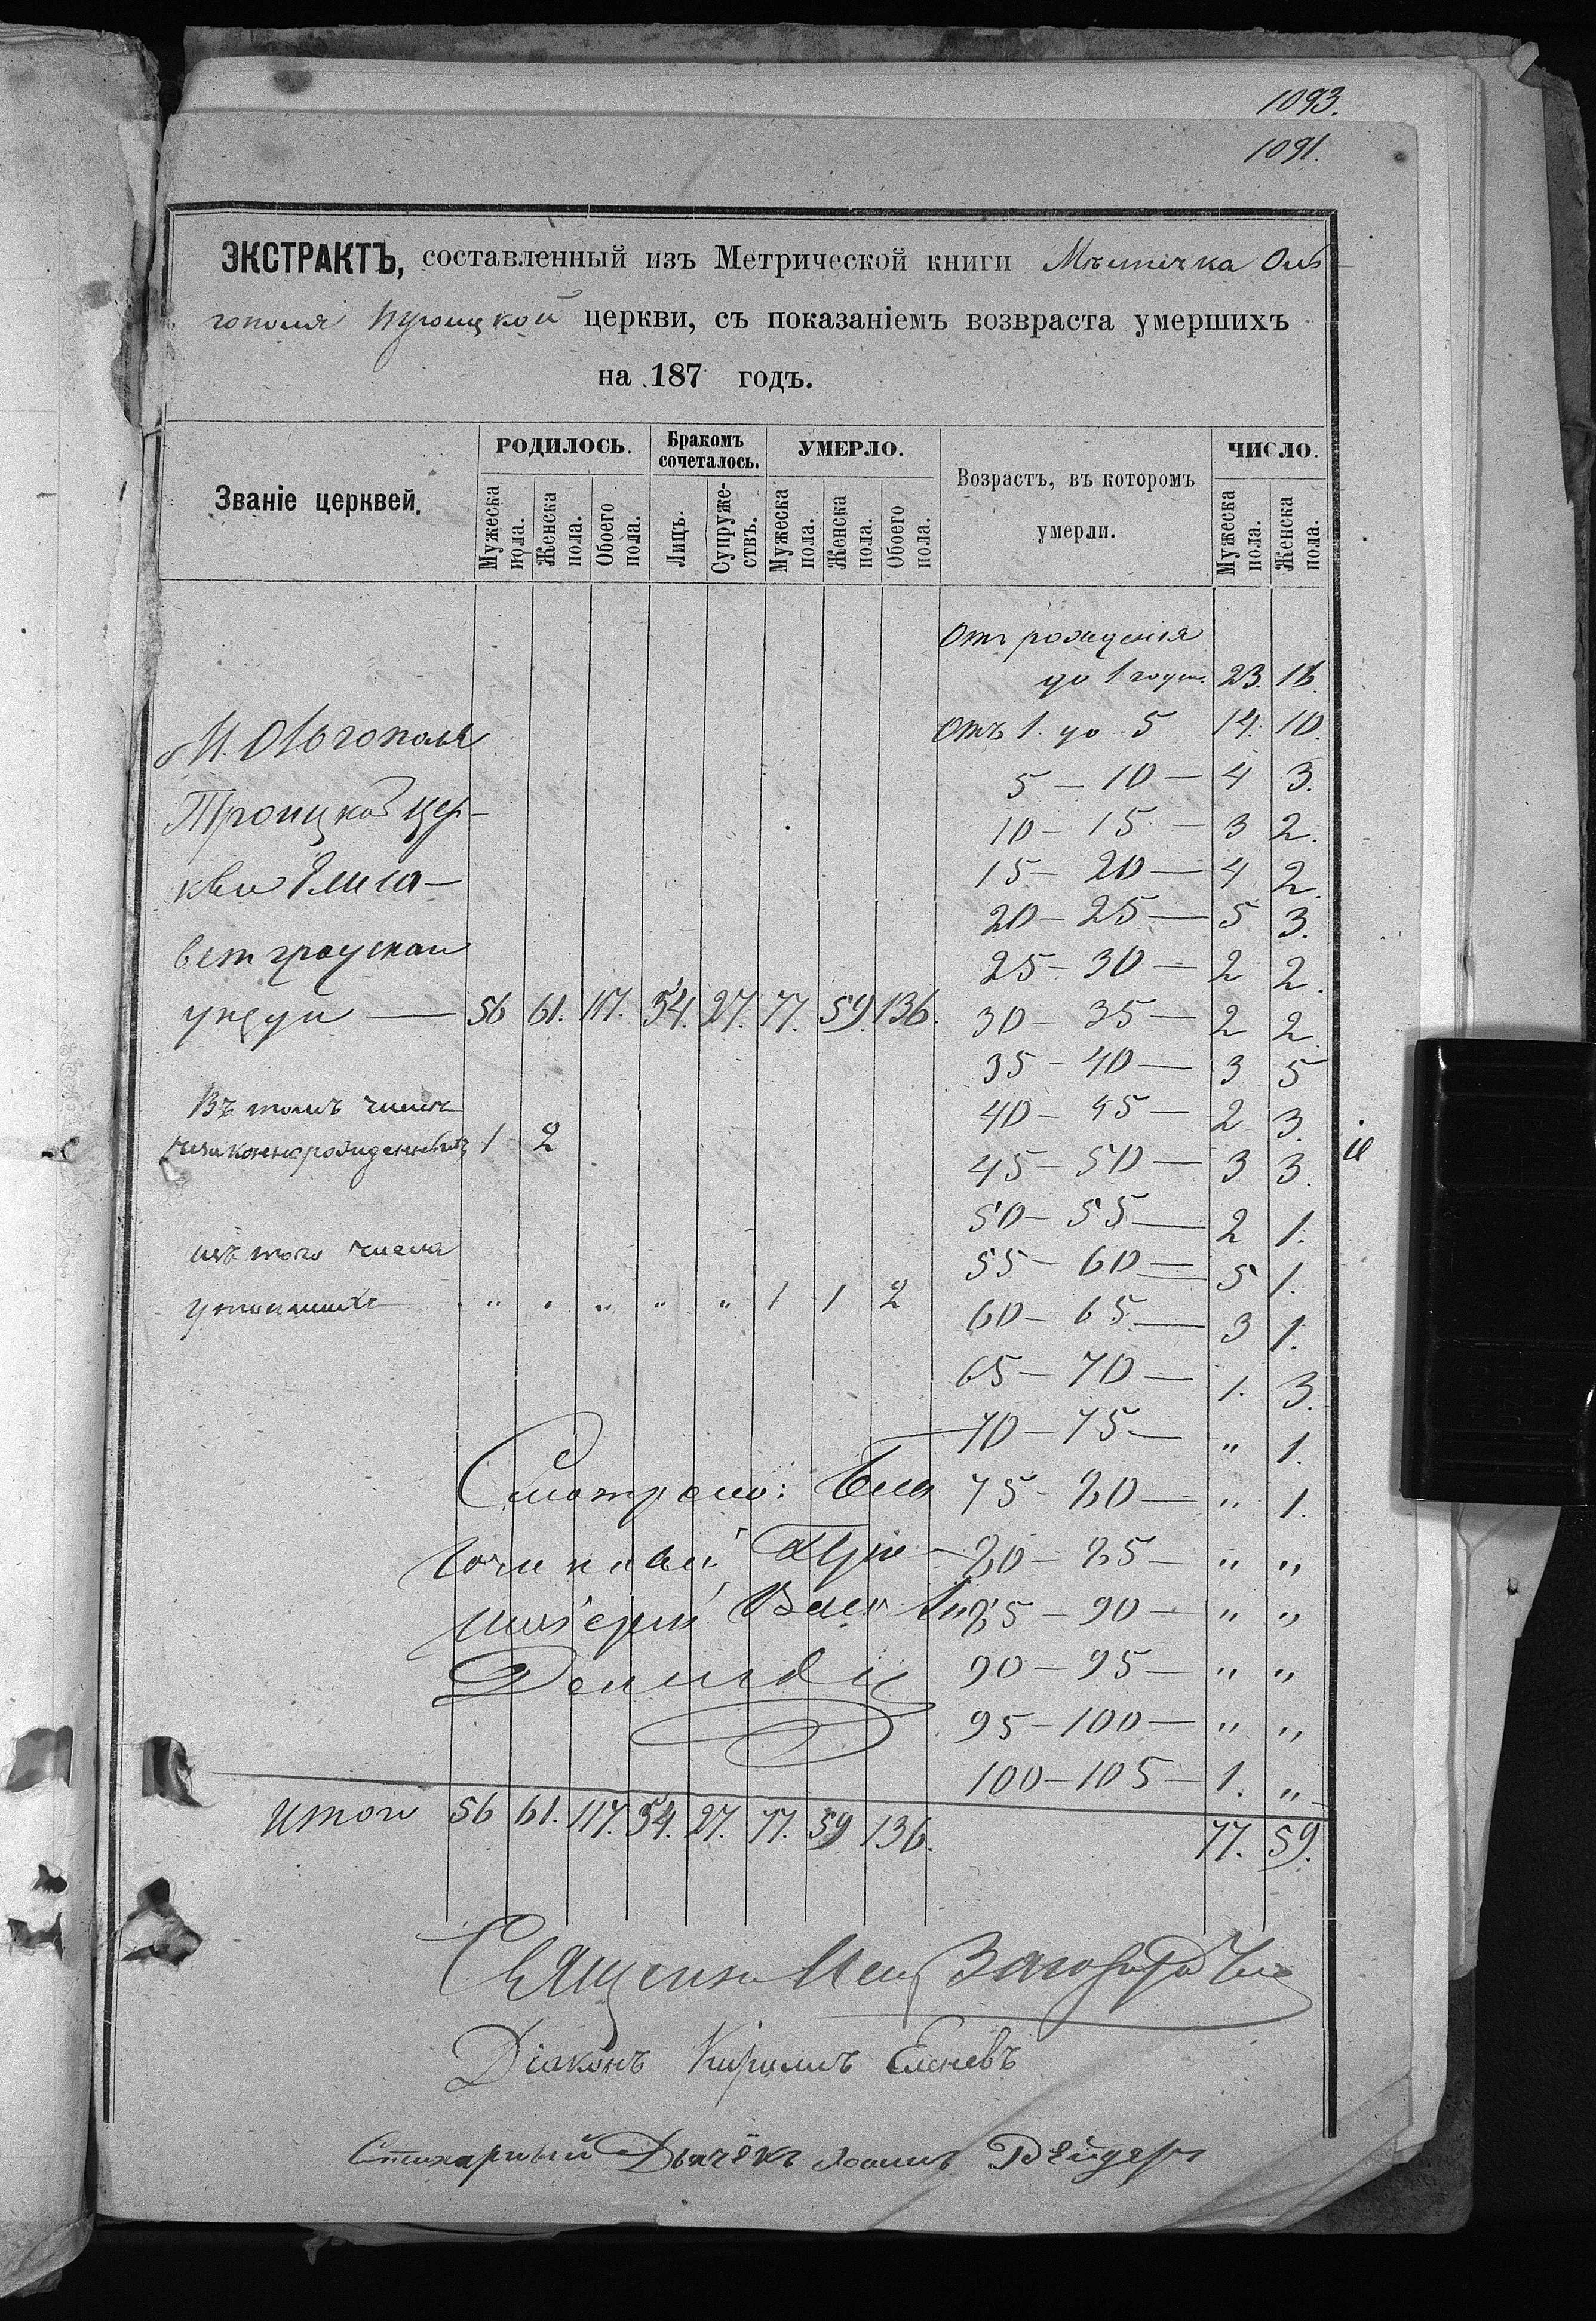 1093.
1091.
ЭКСТРАКТЪ, составленный изъ Метрической книги Мѣстечка Оль-
гополя Троицкой церкви, съ показаніемъ возвраста умершихъ
на 187 годъ.
Званіе церквей.
РОДИЛОСЬ.
Мужеска пола.
Женска пола.
Обоего пола.
Бракомъ сочеталось.
Лицъ.
Супруже-ствъ.
УМЕРЛО.
Мужеска пола.
Женска пола.
Обоего пола.
Возрастъ, въ которомъ
умерли.
ЧИСЛО.
Мужеска пола.
Женска пола.
Отъ рожденія
до 1 года. 23. 16.
Отъ 1. до 5 14. 10.
5 — 10 — 4 3.
10 — 15 — 3 2.
15 — 20 — 4 2.
20 — 25 — 5 3.
25 — 30 — 2 2.
30 — 35 — 2 2.
35 — 40 — 3 5
40 — 45 — 2 3.
45 — 50 — 3 3.
50 — 55 — 2 1.
55 — 60 — 5 1.
60 — 65 — 3 1.
65 — 70 — 1. 3.
70 — 75 — " 1.
75 — 80 — " 1.
80 — 85 — " "
85 — 90 — " "
90 — 95 — " "
95 — 100 — " "
100 — 105 — 1. "
М. Ольгополя
Троицкой цер-
кви Елиса-
ветградскаго
уезда — 56 61. 117. 54. 27. 77. 59. 136.
Въ томъ числѣ
незаконнорожденныхъ 1 2
изъ того числа
утопшихъ . " . " " " 1 1 2
Смотрѣлъ: Бла
гочинный Про-
тоіерей Вас.
Итого 56 61. 117. 54. 27. 77. 59 136. 77. 59.
Священ
Діаконъ Кириллъ Еленевъ
Стихарный Дьячёкъ Іоаннъ